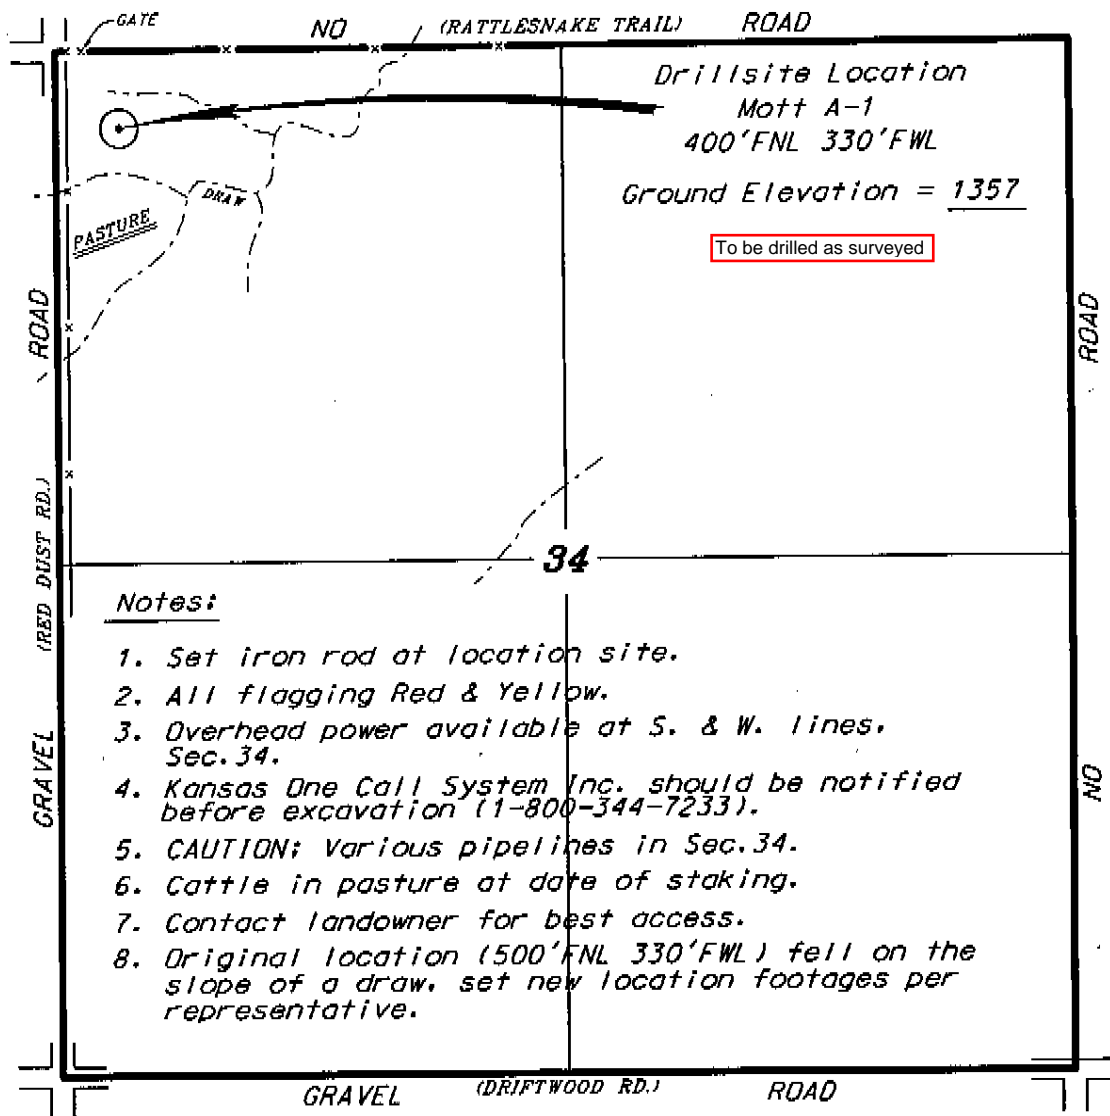 GATE
NO (RATTLESNAKE TRAIL) ROAD
Drillsite Location
Mott A-1
400'FNL 330'FWL
Ground Elevation = 1357
To be drilled as surveyed
DRAW
PASTURE
ROAD
ROAD
(RED DUST RD.)
34
GRAVEL
NO
Notes:
1. Set iron rod at location site.
2. All flagging Red & Yellow.
3. Overhead power available at S. & W. lines.
Sec.34.
4. Kansas One Call System Inc. should be notified
before excavation (1-800-344-7233).
5. CAUTION: Various pipelines in Sec.34.
6. Cattle in pasture at date of staking.
7. Contact landowner for best access.
8. Original location (500'FNL 330'FWL) fell on the
slope of a draw. set new location footages per
representative.
GRAVEL (DRIFTWOOD RD.) ROAD